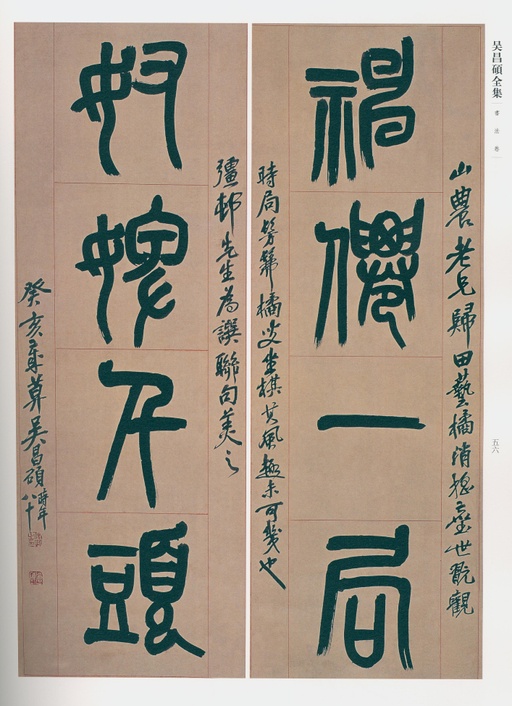 吴昌碩全集
書法卷
五六
山農老兄歸田藝橘消摇塵世翫觀
神僊一局
時局髣髴橘叟坐棋其風趣未可幾也
彊邨先生為譔聯句美之
奴嫁千頭
癸亥吴昌碩時年八十